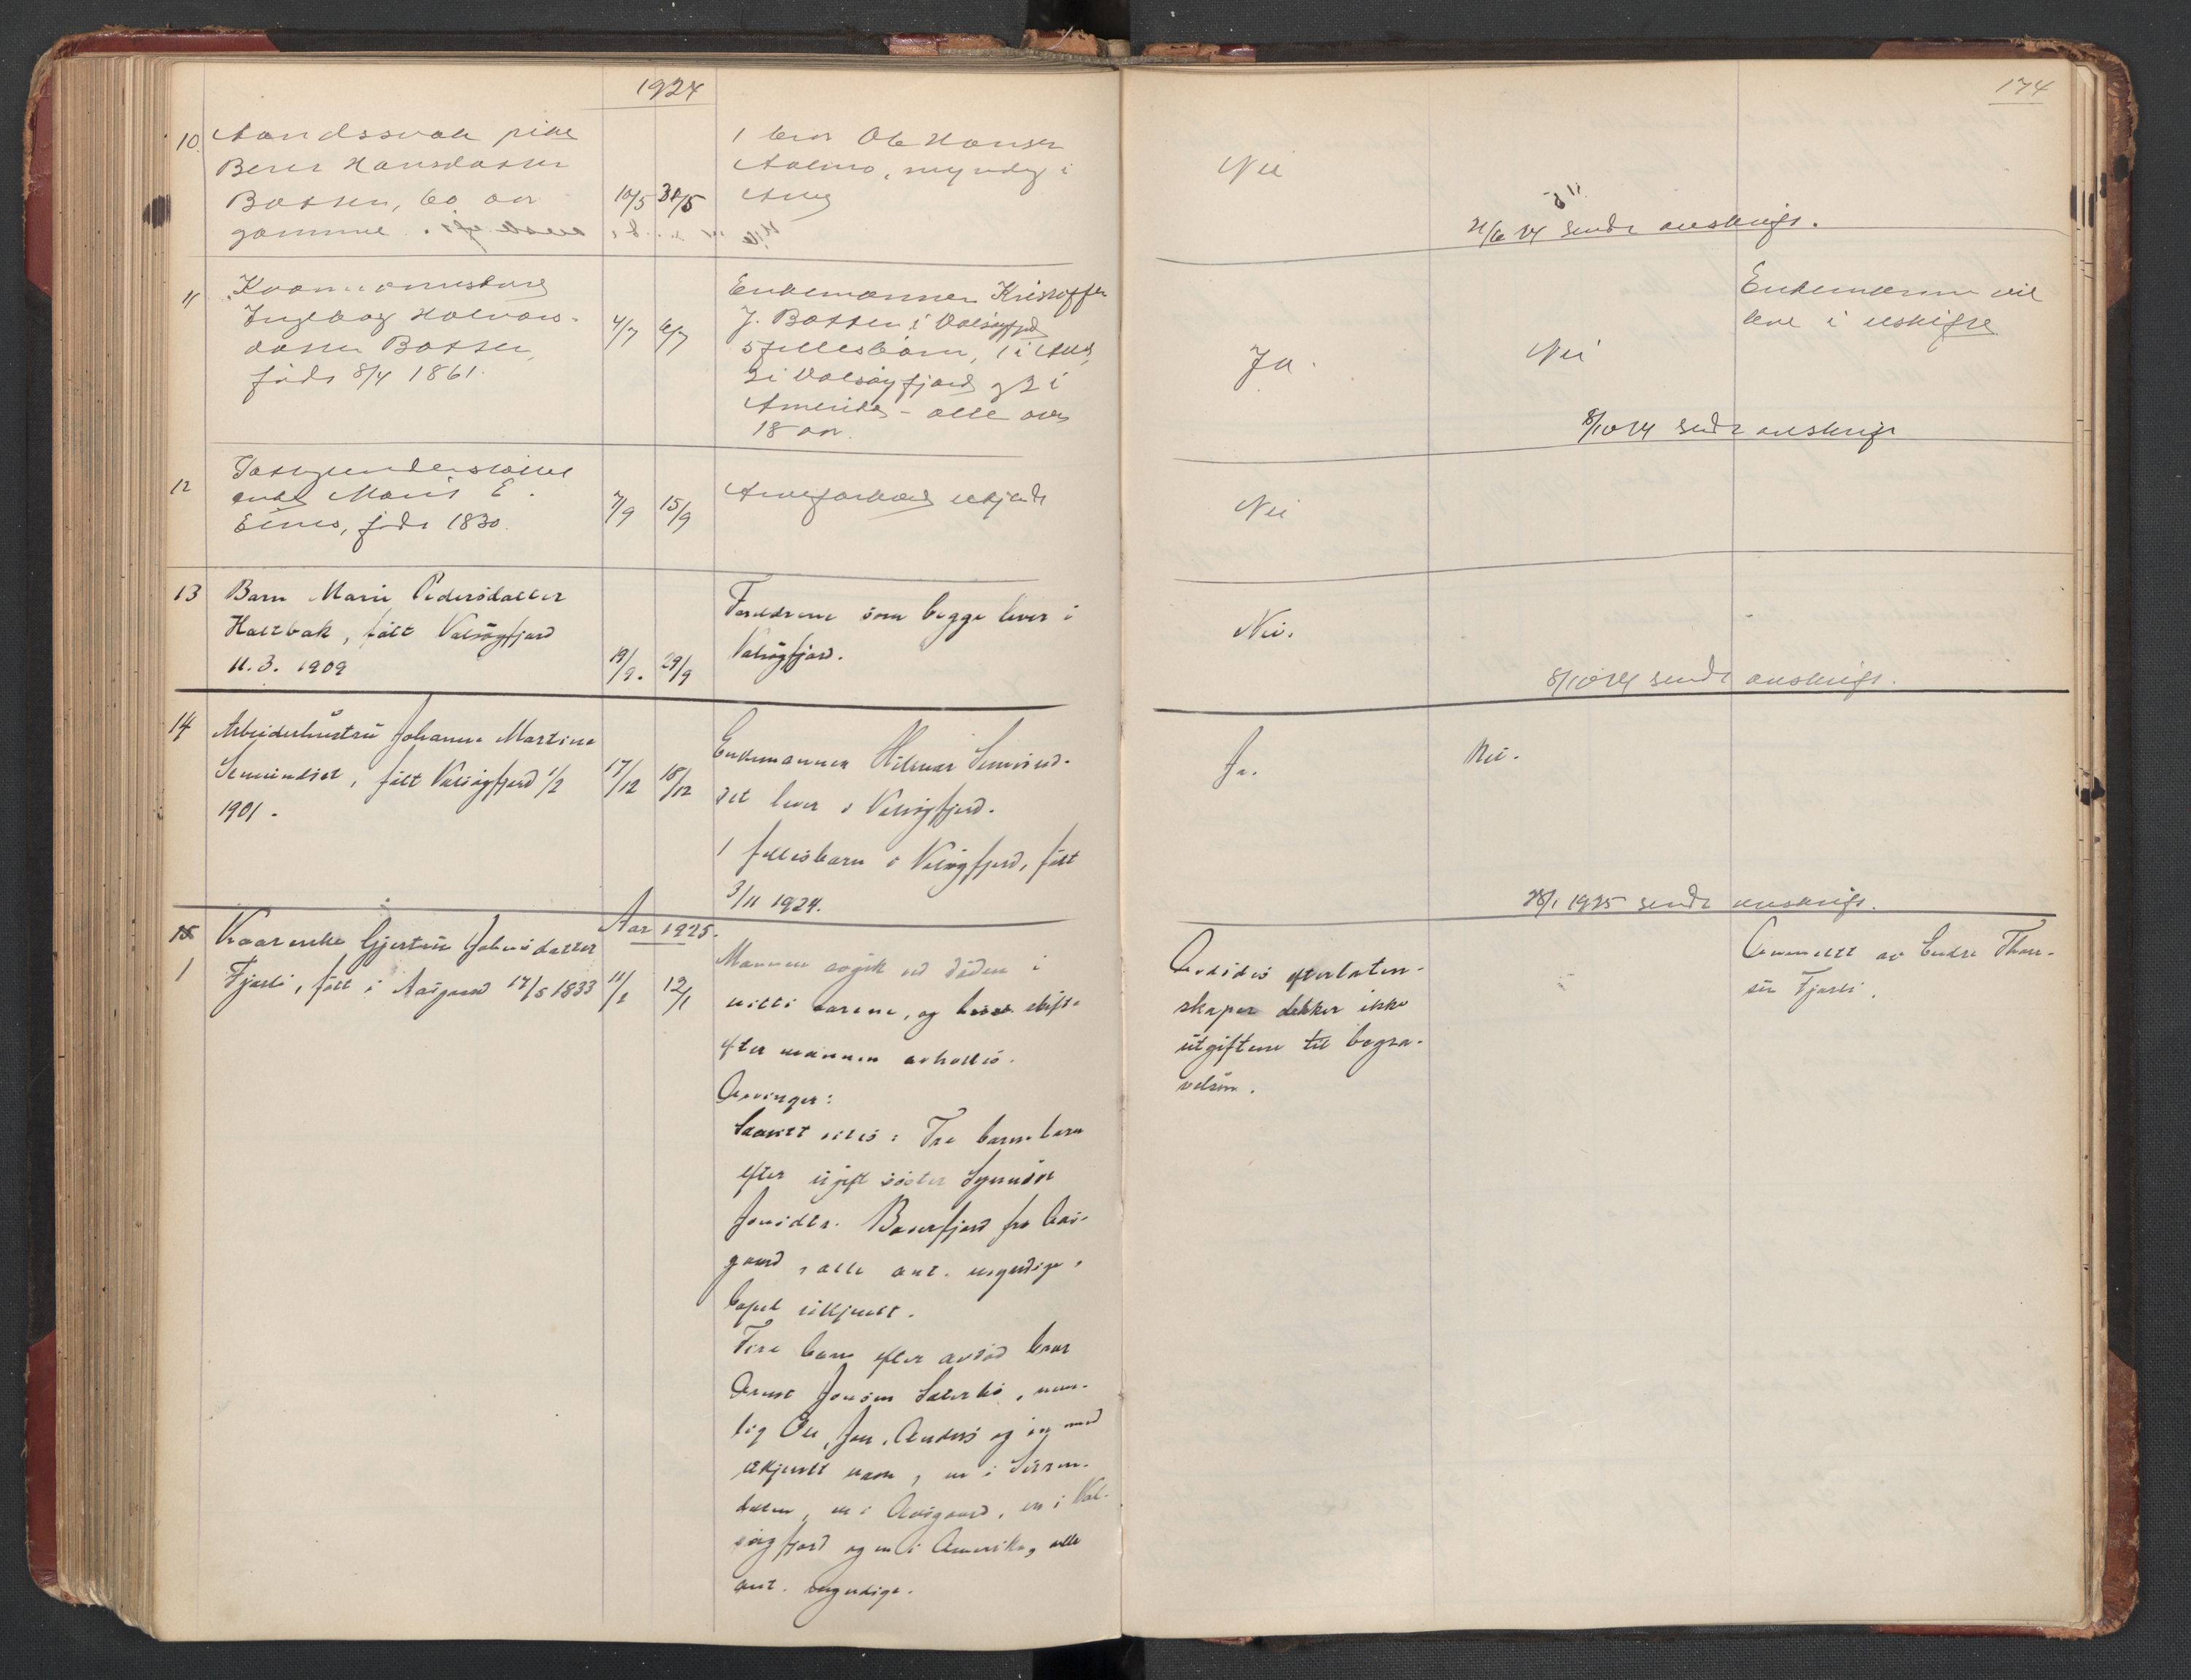 1924
174
10. Aandssvak pike
Berit Hansdatter
Botten, 60 aar
gammel.
10/5 31/5
1 bror Ole Hansen
Aalmo, myndig i
Aure
Nei
21/6 24 sendt avskrift.
11 Kaarmannskone
Ingeborg Halvors-
datter Botten,
födt 8/4 1861.
4/7 6/7
Enkemannen Kristoffer
J. Botten i Valsøyfjord
5 fellesbarn, 1 i Aure,
2 i Valsøyfjord og 2 i
Amerika - alle over
18 aar.
Ja.
Nei
Enkemannen vil
leve i uskifte
8/10 24 sendt avskrift
12
Marit E.
födt 1830.
7/9 15/9
ukjendt
Nei
13 Barn Marie Pedersdatter
Haltbak, födt Valsögfjord
11.3. 1909
19/9. 29/9
Foreldrene som begge lever i
Valsögfjord.
Nei.
8/10 24 sendt avskrift.
14 Arbeiderhustru Johanna Martine
födt Valsögfjord 1/2
1901.
17/12 18/12
Enkemannen Hilmar
set lever i Valsögfjord.
1 fellesbarn i Valsögfjord, födt
3/11 1924.
Ja.
Nei.
28/1 1925 sendt avskrift.
Aar 1925.
15
1 Kaarenke Gjertrü Johnsdatter
Fjærli, födt i Aasgaard 17/5 1833
11/1 12/1
Mannen avgik ved döden i
nitti aarene, og blev skifte
efter mannen avholdt.
Arvinger:
Tre barnebarn
efter ugift söster
Jonsdtr. Bæverfjord fra Aas-
gaard, alle ant. myndige,
bopel ukjendt.
Fire barn efter avdöd bror
Arnt Jonsen Sæterbö, nem-
lig Ole, Jon, Anders og en med
ukjendt navn, en i Surren-
dalen, en i Aasgaard, en i Val-
sögfjord og en i Amerika, alle
ant. myndige.
Avdödes efterlaten-
skaper dekker ikke
utgiftene til begra-
velsen.
Anmeldt av Endre Thor-
sen Fjærli.